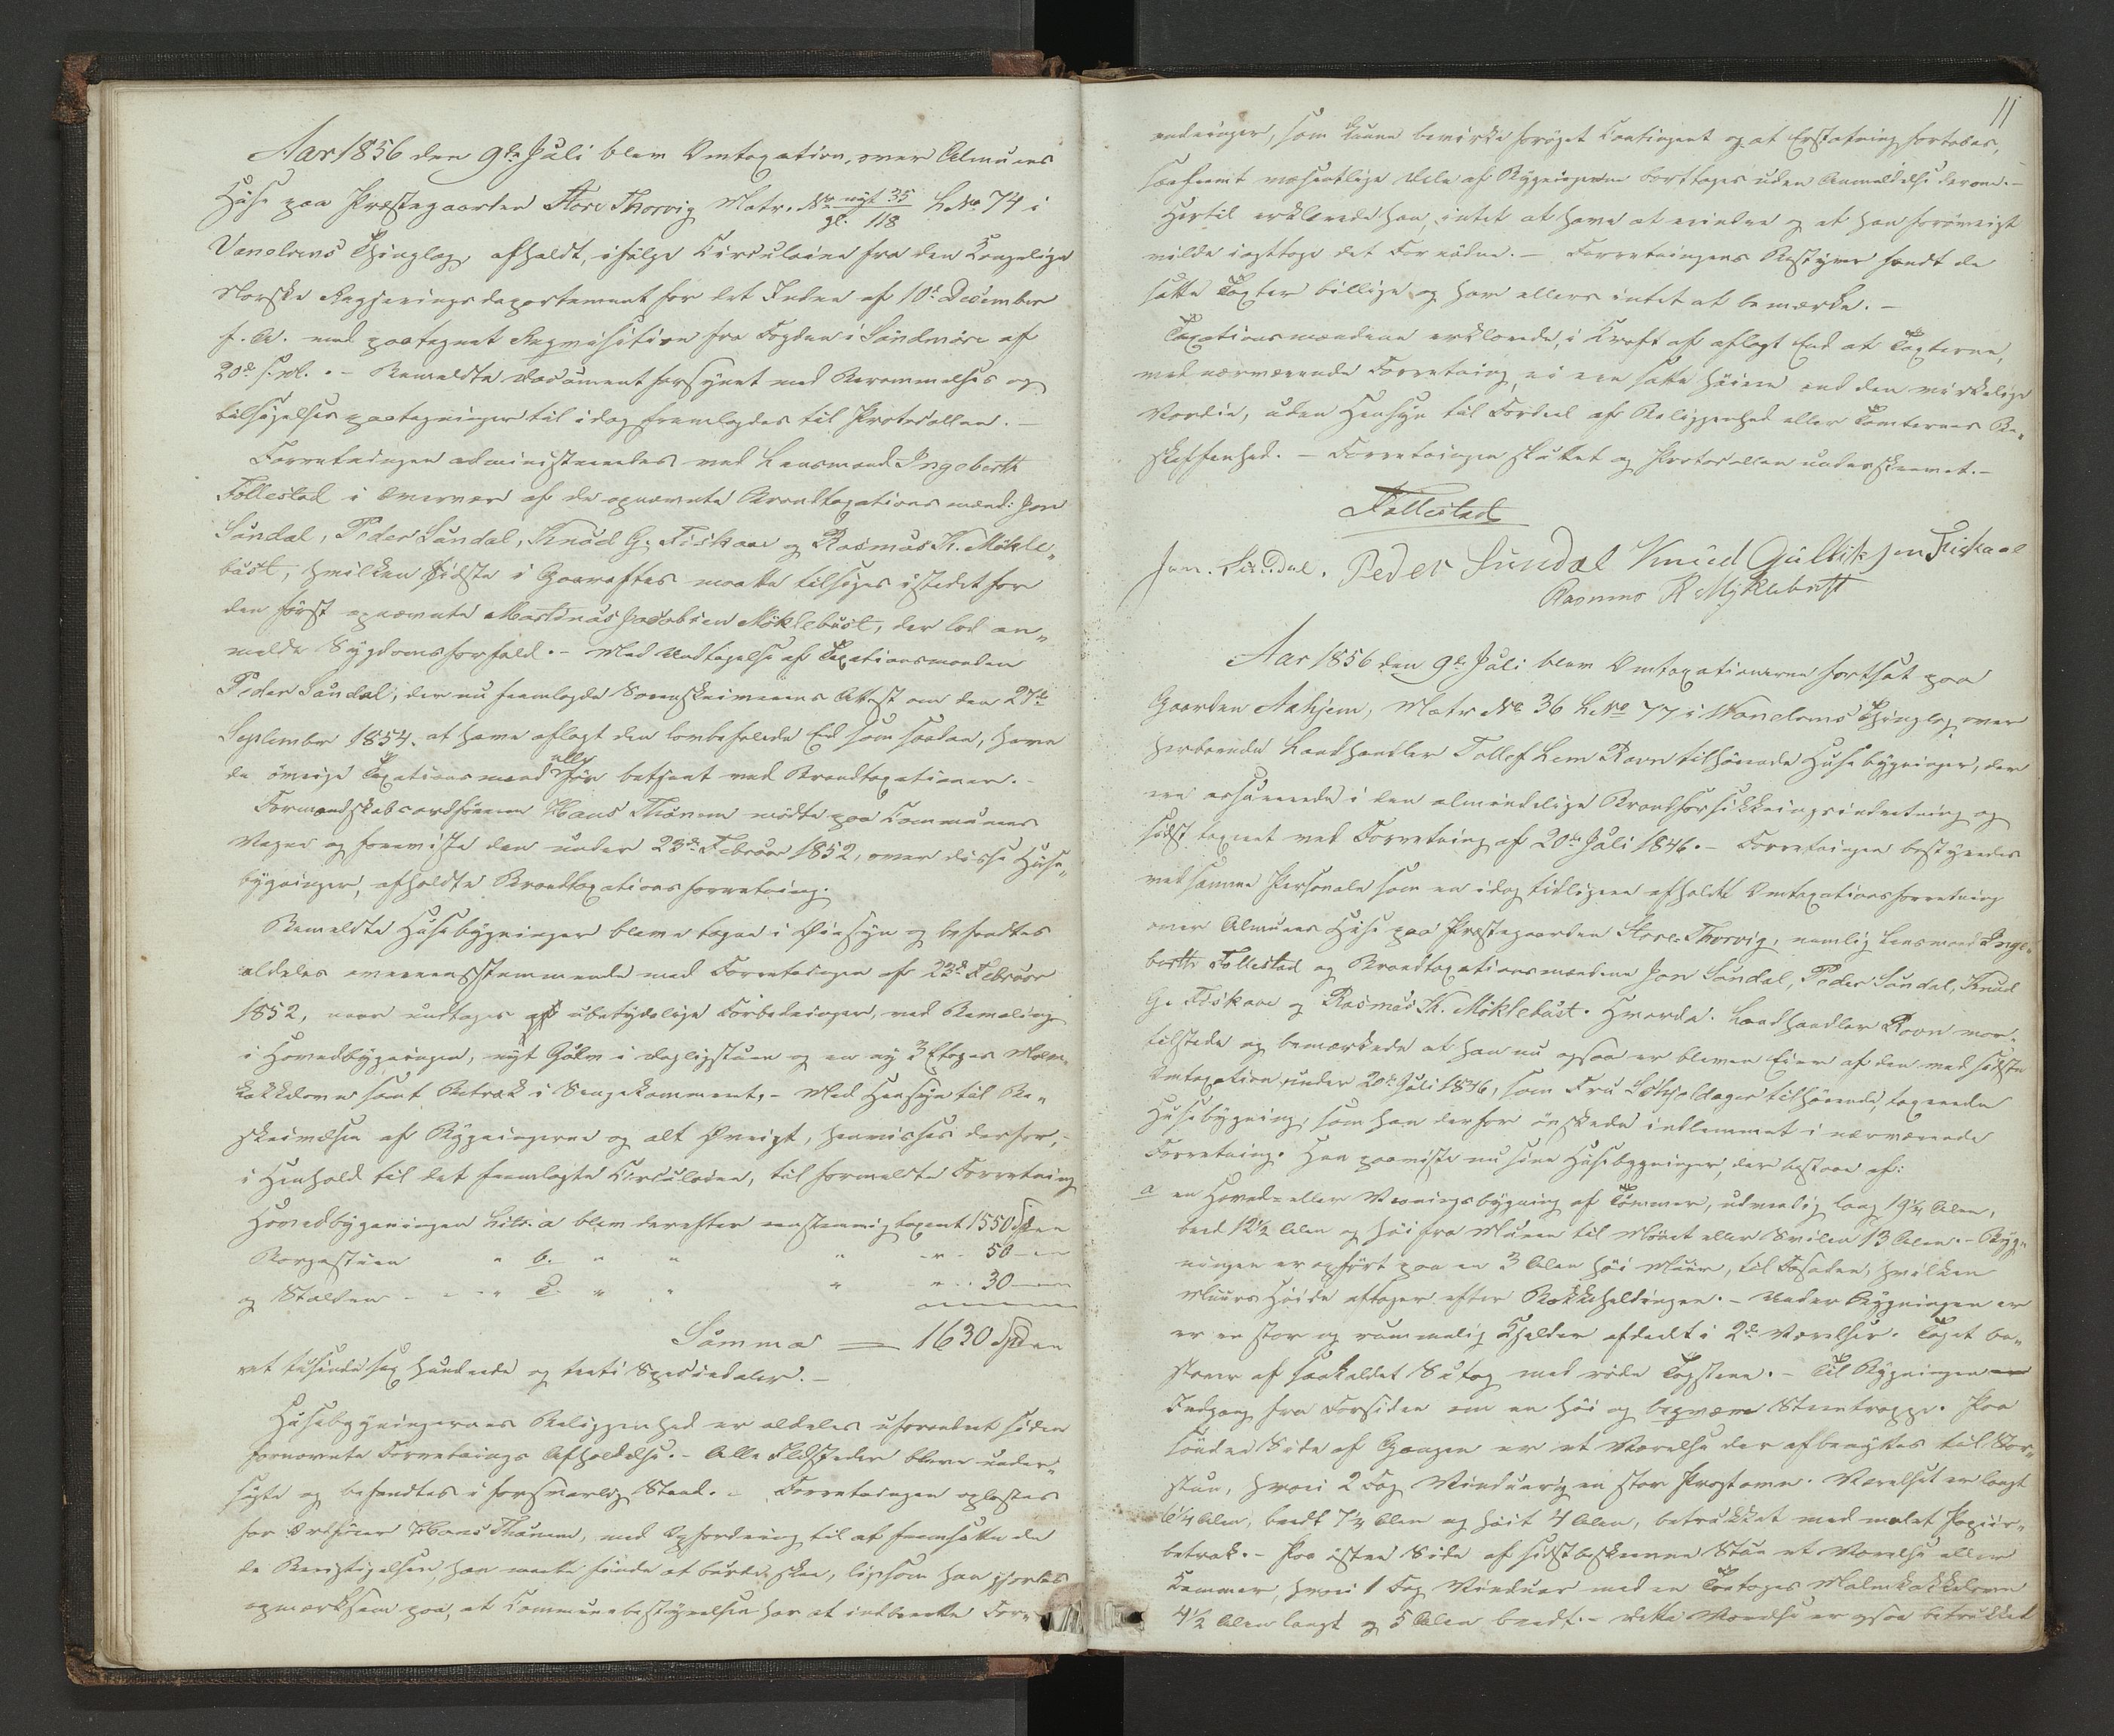 Aar 1856 den 9de Juli blev Omtaxation, over Almuens
Huse paa Præstegaarden Store Thorvig Matr. No nyt 35 gl. 118 LNo 74 i
Vanelvens Thinglag, afholdt, ifølge Circulaire fra den Kongelige
Norske Regjerings departement for det Indre af 10de December
f. A. med paategnet Reqvisition fra Fogden i Söndmöre af
20de s. M. – Bemeldte Document forsynet med Berammelses og
tilsigelses paategninger til idag fremlagdes til Protocollen. –
Forretningen administreredes ved Lensmand Ingebrth
Follestad i Overvær af de opnævnte Brandtaxationsmænd: Jon
Sundal, Peder Sundal, Knud G. Fiskaae og Rasmus K. Mökle„
bust, hvilken sidste i Gaaraftes maatte tilsiges istedet for
den först opnævnte Martinus Jacobsen Möklebust, der lod an„
melde Sygdomsforfald. – Med Undtagelse af Taxationsmanden
Peder Sundal, der nu fremlagde Sorenskriverens Attest om den 27de
September 1854 at have aflagt den lovbefalede Ed som saadan, have
de övrige Taxationsmænd alle för betjent ved Brandtaxationer. –
Formandskabsordförer Hans Thunem mödte paa Communens
Vegne og foreviste den under 23de Februar 1852, over disse Huse„
bygninger, afholdte Brandtaxationsforretning.
Bemeldte Husebygninger bleve tagne i Øiesyn og befandtes
aldeles overeensstemmende med Forretningen af 23de Februar
1852, naar undtages ubetydelige Forbedringer, ved Bemaling
i Hovedbygningen, nyt Gulv i Dagligstuen og en ny 3 Etages Malm„
kakkelovn samt Betræk i Sengekammeret. – Med Hensyn til Be„
skrivelsen af Bygningerne og alt Øvrigt, henvises derfor,
i Henhold til det fremlagte Circulaire, til formeldte Forretning
Hovedbygningen Litr. a blev derefter eenstemmig taxeret 1550 Spd
Borgestuen „ b. „ „ „ „ 50 –
og Stalden – „ c. „ „ „ „ 30 –
Summa = 1630 Spd
et tusinde sex hundrede og treti Speciedaler. –
Husebygningernes Beliggenhed er aldeles uforandret siden
fornævnte Forretnings Afholdelse. – Alle Ildsteder bleve under„
søgte og befandtes i forsvarlig Stand. – Forretningen oplæstes
for Ordfører Hans Thunem, med Opfordring til at fremsætte de
de Berigtigelser han maatte finde at burde skee, ligesom han gjordes
opmærksom paa, at Communebestyrelsen har at indberette For„
11
andringer, som kunne bevirke forøget Contingent og at Erstatning fortabes,
saafremt væsentlige Dele af Bygningerne borttages uden Anmeldelse derom. –
Hertil erklærede han, intet at have at erindre og at han forövrigt
vilde iagttage det Fornödne. – Forretningens Bestyrer fandt de
satte Taxter billige og har ellers intet at bemærke. –
Taxationsmændene erklærede, i Kraft af aflagt Eed at Taxterne,
ved nærværende Forretning, ei ere satte höiere end den virkelige
Værdie, uden Hensyn til Fordeel af Beliggenhed eller Tomternes Be„
skaffenhed. – Forretningen sluttet og Protocollen underskrevet. –
Follestad
Jon Sundal. Peder Sundal Knud Gullik sen Fiskaae
Rasmus K Myklebust
Aar 1856 den 9de Juli blev Omtaxationerne fortsat paa
Gaarden Aahjem, Matr No 36 LNo 77 i Vanelvens Thinglag, over
herboende Landhandler Tollef Lem Ravn tilhörende Husebygninger, der
ere assurerede i den almindelige Brandforsikkringsindretning og
sidst taxeret ved Forretning af 20de Juli 1846. – Forretningen bestyredes
ved samme Personale som en idag tidligere afholdt Omtaxationsforretning
over Almuens Huse paa Præstegaarden Store Thorvig, nemlig Lensmand Inge„
brth Follestad og Brandtaxationsmændene Jon Sundal, Peder Sundal, Knud
G. Fiskaae og Rasmus K. Möklebust. Hvorda: Landhandler Ravn var
tilstede og bemærkede at han nu ogsaa er bleven Eier af den ved sidste
Omtaxation under 20de Juli 1846, som Fru tilhörende, taxerede
Husebygning, som han derfor önskede indlemmet i nærværende
Forretning. Han paaviste nu sine Husebygninger, der bestaae af:
a en Hoved- eller Vaaningsbygning af Tömmer, udvendig lang 19¼ Alen,
bred 12½ Alen og höi fra Muren til Mönet eller Svilen 13 Alen. – Byg„
ningen er opfört paa en 3 Alen höi Muur, til Facaden, hvilken
Muurs Höide aftager efter Bakkeheldingen. – Under Bygningen er
er en stor og rummelig Kjelder afdeelt i 2de Værelser. Taget be„
staaer af saakaldet Sutag med röde Tagsteen. – Til Bygningen
Indgang fra Forsiden om en höi og beqvæm Steentrappe. Paa
söndre Side af Gangen er et Værelse der afbenyttes til Stor„
stue, hvori 2 Fag Vinduer og en stor Pragtovn. Værelset er langt
6¼ Alen, bredt 7¼ Alen og höit 4 Alen, betrukket med malet Papiir„
betræk. – Paa östre Side af sidstbeskrevne Stue et Værelse eller
Kammer, hvori 1 Fag Vinduer med en Toetages Malmkakkelovn
4½ Alen langt og 5 Alen bredt. – Dette Værelse er ogsaa betrukket